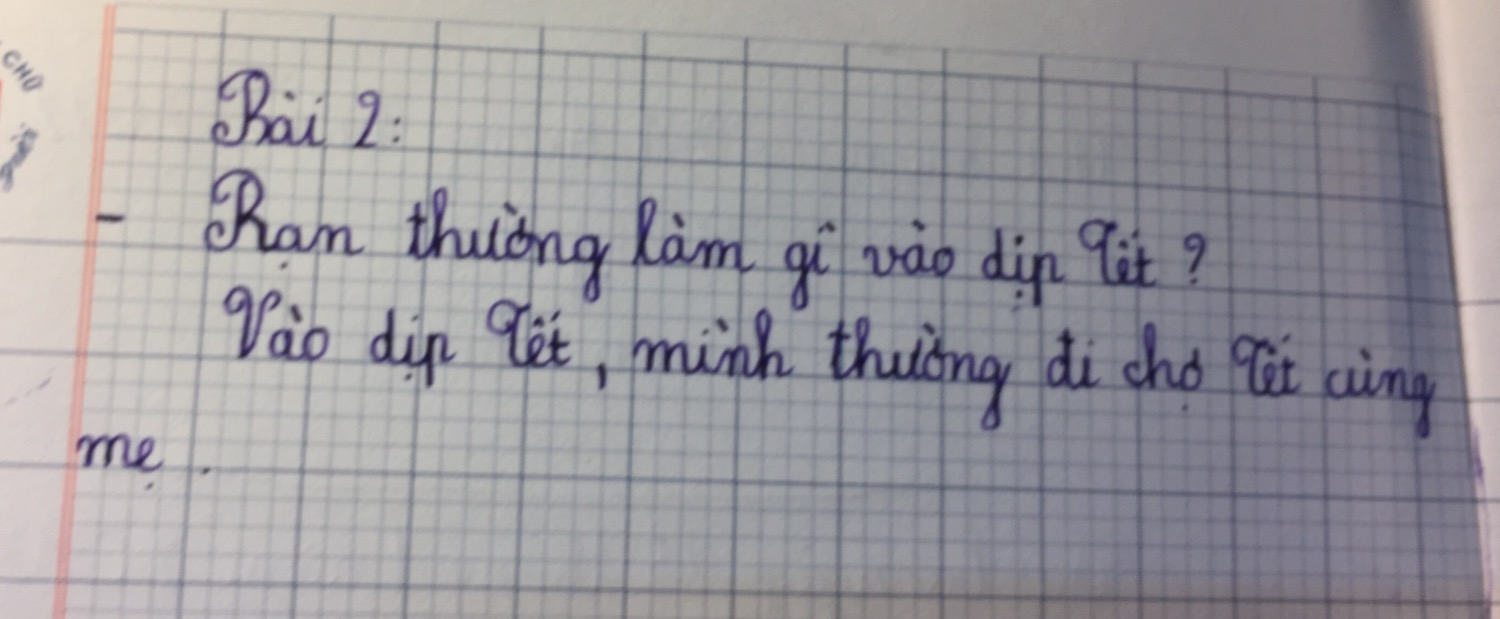 Bài 2:
- Bạn thường làm gì vào dịp Tết ?
Vào dịp Tết, mình thường đi chợ Tết cùng
mẹ .